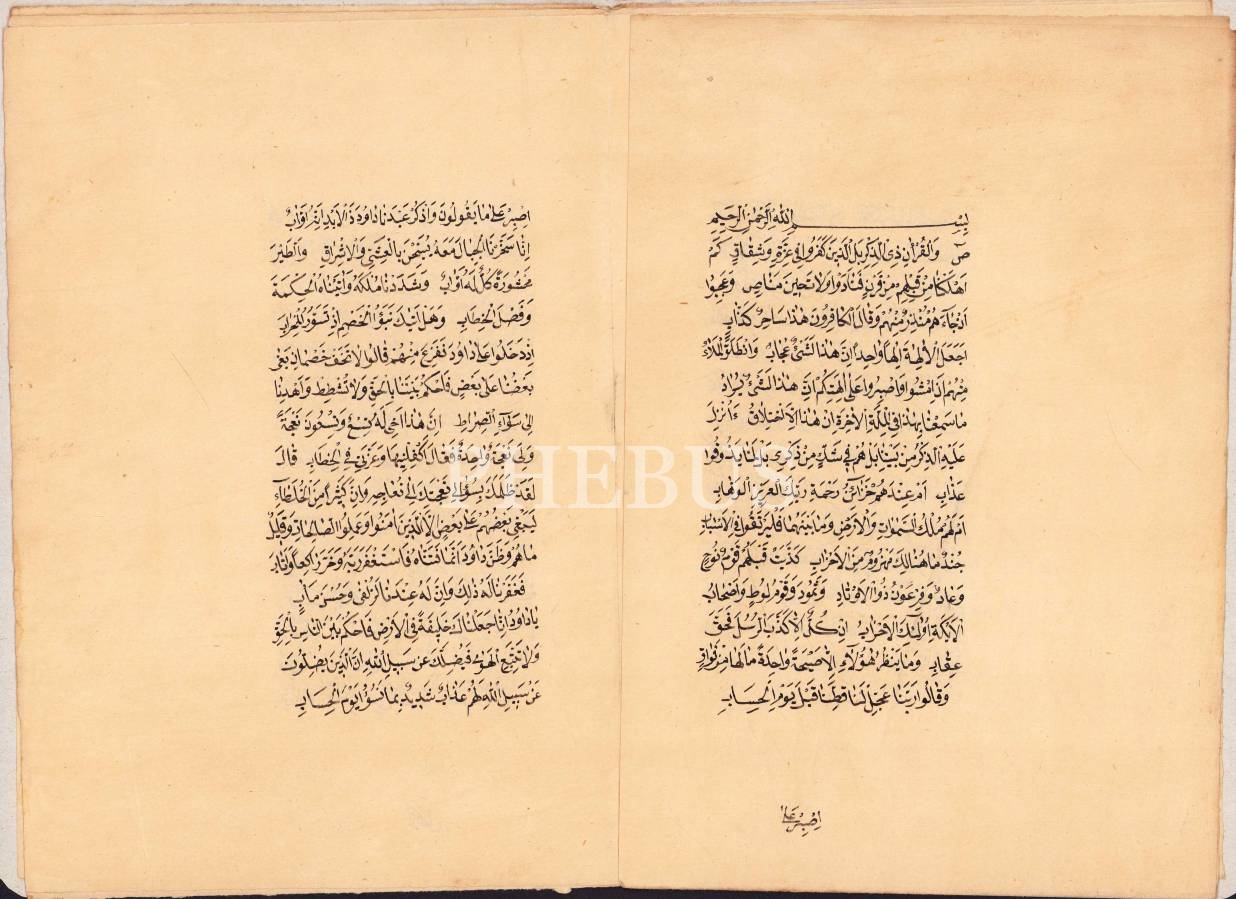 بِسْمِ اللهِ الرَّحْمٰنِ الرَّحِيمِ
صٓ وَالْقُرْاٰنِ ذِى الذِّكْرِ بَلِ الَّذِينَ كَفَرُوا فِى عِزَّةٍ وَشِقَاقٍ كَمْ
اَهْلَكْنَا مِنْ قَبْلِهِمْ مِنْ قَرْنٍ فَنَادَوْا وَلَاتَ حِينَ مَنَاصٍ وَعَجِبُوا
اَنْ جَاءَهُمْ مُنْذِرٌ مِنْهُمْ وَقَالَ الْكَافِرُونَ هٰذَا سَاحِرٌ كَذَّابٌ
اَجَعَلَ الْاٰلِهَةَ اِلٰهًا وَاحِدًا اِنَّ هٰذَا لَشَىْءٌ عُجَابٌ وَانْطَلَقَ الْمَلَاُ
مِنْهُمْ اَنِ امْشُوا وَاصْبِرُوا عَلٰى اٰلِهَتِكُمْ اِنَّ هٰذَا لَشَىْءٌ يُرَادُ
مَا سَمِعْنَا بِهٰذَا فِى الْمِلَّةِ الْاٰخِرَةِ اِنْ هٰذَا اِلَّا اخْتِلَاقٌ ءَاُنْزِلَ
عَلَيْهِ الذِّكْرُ مِنْ بَيْنِنَا بَلْ هُمْ فِى شَكٍّ مِنْ ذِكْرِى بَلْ لَمَّا يَذُوقُوا
عَذَابِ اَمْ عِنْدَهُمْ خَزَائِنُ رَحْمَةِ رَبِّكَ الْعَزِيزِ الْوَهَّابِ
اَمْ لَهُمْ مُلْكُ السَّمٰوَاتِ وَالْاَرْضِ وَمَا بَيْنَهُمَا فَلْيَرْتَقُوا فِى الْاَسْبَابِ
جُنْدٌ مَا هُنَالِكَ مَهْزُومٌ مِنَ الْاَحْزَابِ كَذَّبَتْ قَبْلَهُمْ قَوْمُ نُوحٍ
وَعَادٌ وَفِرْعَوْنُ ذُو الْاَوْتَادِ وَثَمُودُ وَقَوْمُ لُوطٍ وَاَصْحَابُ
الْاَيْكَةِ اُولٰئِكَ الْاَحْزَابُ اِنْ كُلٌّ اِلَّا كَذَّبَ الرُّسُلَ فَحَقَّ
عِقَابِ وَمَا يَنْظُرُ هٰؤُلَاءِ اِلَّا صَيْحَةً وَاحِدَةً مَا لَهَا مِنْ فَوَاقٍ
وَقَالُوا رَبَّنَا عَجِّلْ لَنَا قِطَّنَا قَبْلَ يَوْمِ الْحِسَابِ
اِصْبِرْ عَلٰى
اِصْبِرْ عَلٰى مَا يَقُولُونَ وَاذْكُرْ عَبْدَنَا دَاوُدَ ذَا الْاَيْدِ اِنَّهُ اَوَّابٌ
اِنَّا سَخَّرْنَا الْجِبَالَ مَعَهُ يُسَبِّحْنَ بِالْعَشِىِّ وَالْاِشْرَاقِ وَالطَّيْرَ
مَحْشُورَةً كُلٌّ لَهُ اَوَّابٌ وَشَدَدْنَا مُلْكَهُ وَاٰتَيْنَاهُ الْحِكْمَةَ
وَفَصْلَ الْخِطَابِ وَهَلْ اَتٰيكَ نَبَؤُا الْخَصْمِ اِذْ تَسَوَّرُوا الْمِحْرَابَ
اِذْ دَخَلُوا عَلٰى دَاوُدَ فَفَزِعَ مِنْهُمْ قَالُوا لَا تَخَفْ خَصْمَانِ بَغٰى
بَعْضُنَا عَلٰى بَعْضٍ فَاحْكُمْ بَيْنَنَا بِالْحَقِّ وَلَا تُشْطِطْ وَاهْدِنَا
اِلٰى سَوَاءِ الصِّرَاطِ اِنَّ هٰذَا اَخِى لَهُ تِسْعٌ وَتِسْعُونَ نَعْجَةً
وَلِىَ نَعْجَةٌ وَاحِدَةٌ فَقَالَ اَكْفِلْنِيهَا وَعَزَّنِى فِى الْخِطَابِ قَالَ
لَقَدْ ظَلَمَكَ بِسُؤَالِ نَعْجَتِكَ اِلٰى نِعَاجِهِ وَاِنَّ كَثِيرًا مِنَ الْخُلَطَاءِ
لَيَبْغِى بَعْضُهُمْ عَلٰى بَعْضٍ اِلَّا الَّذِينَ اٰمَنُوا وَعَمِلُوا الصَّالِحَاتِ وَقَلِيلٌ
مَا هُمْ وَظَنَّ دَاوُدُ اَنَّمَا فَتَنَّاهُ فَاسْتَغْفَرَ رَبَّهُ وَخَرَّ رَاكِعًا وَاَنَابَ
فَغَفَرْنَا لَهُ ذٰلِكَ وَاِنَّ لَهُ عِنْدَنَا لَزُلْفٰى وَحُسْنَ مَاٰبٍ
يَا دَاوُدُ اِنَّا جَعَلْنَاكَ خَلِيفَةً فِى الْاَرْضِ فَاحْكُمْ بَيْنَ النَّاسِ بِالْحَقِّ
وَلَا تَتَّبِعِ الْهَوٰى فَيُضِلَّكَ عَنْ سَبِيلِ اللهِ اِنَّ الَّذِينَ يَضِلُّونَ
عَنْ سَبِيلِ اللهِ لَهُمْ عَذَابٌ شَدِيدٌ بِمَا نَسُوا يَوْمَ الْحِسَابِ
PHEBUS